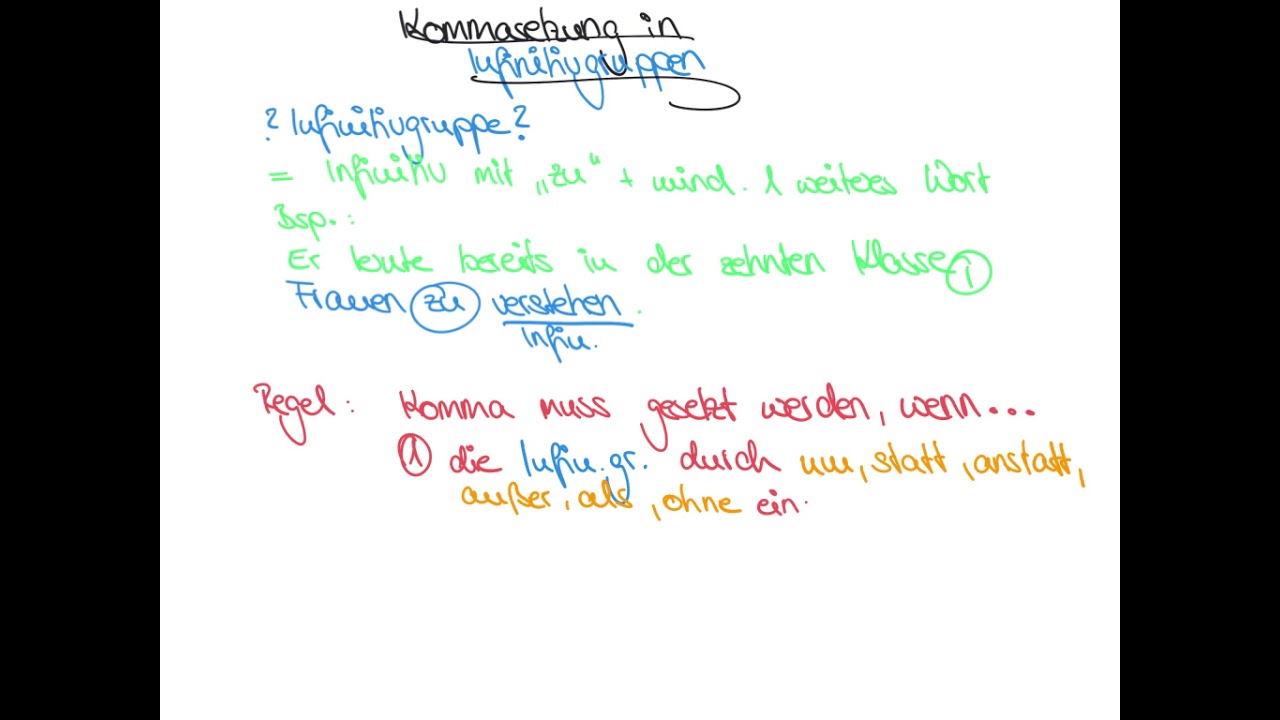 Kommasetzung in
Infinitivgruppen
? Infinitivgruppe?
= Infinitiv mit „zu“ + mind. 1 weiteres Wort
Bsp.:
Er lernte bereits in der zehnten Klasse,
Frauen zu verstehen.
Infin.
Regel: Komma muss gesetzt werden, wenn...
① die Infin.gr. durch um, statt, anstatt,
außer, als, ohne ein.